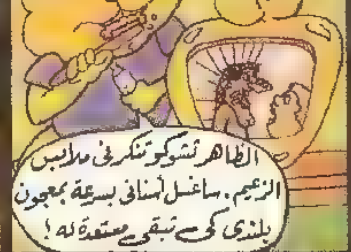 الظاهر تشوكو تنكر فى ملابس
الزعيم. ساغسل أسنانى بسرعة بمعجون
بلندى كى تبقى مستعدة له!